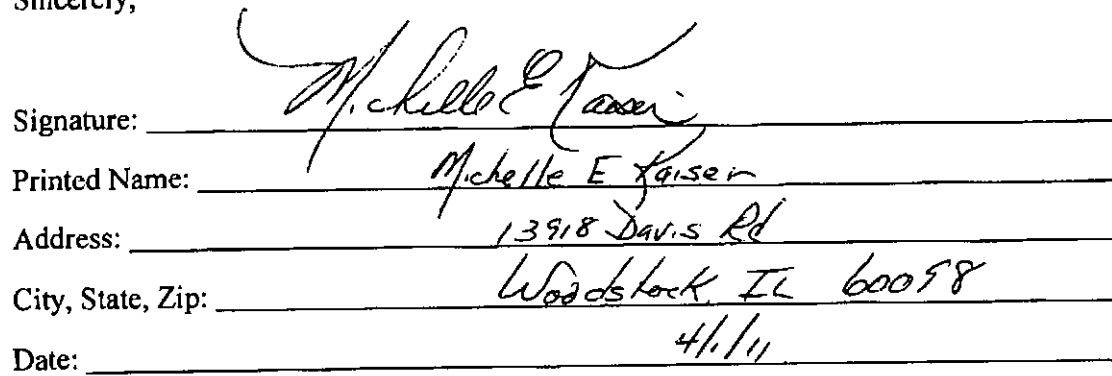 Sincerely,
Signature: Michelle E Kaiser
Printed Name: Michelle E Kaiser
Address: 13918 Davis Rd
City, State, Zip: Woodstock, IL 60098
Date: 4/1/11